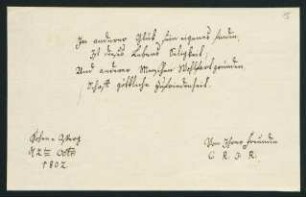 In anderer Glück sein eigenes finden,
Ist dieses Lebens Seligkeit,
Und anderer Menschen Wohlfahrt gründen
Schafft göttliche Zufriedenheit.
1802
Von Ihrer Freundin
C. R. J. R.